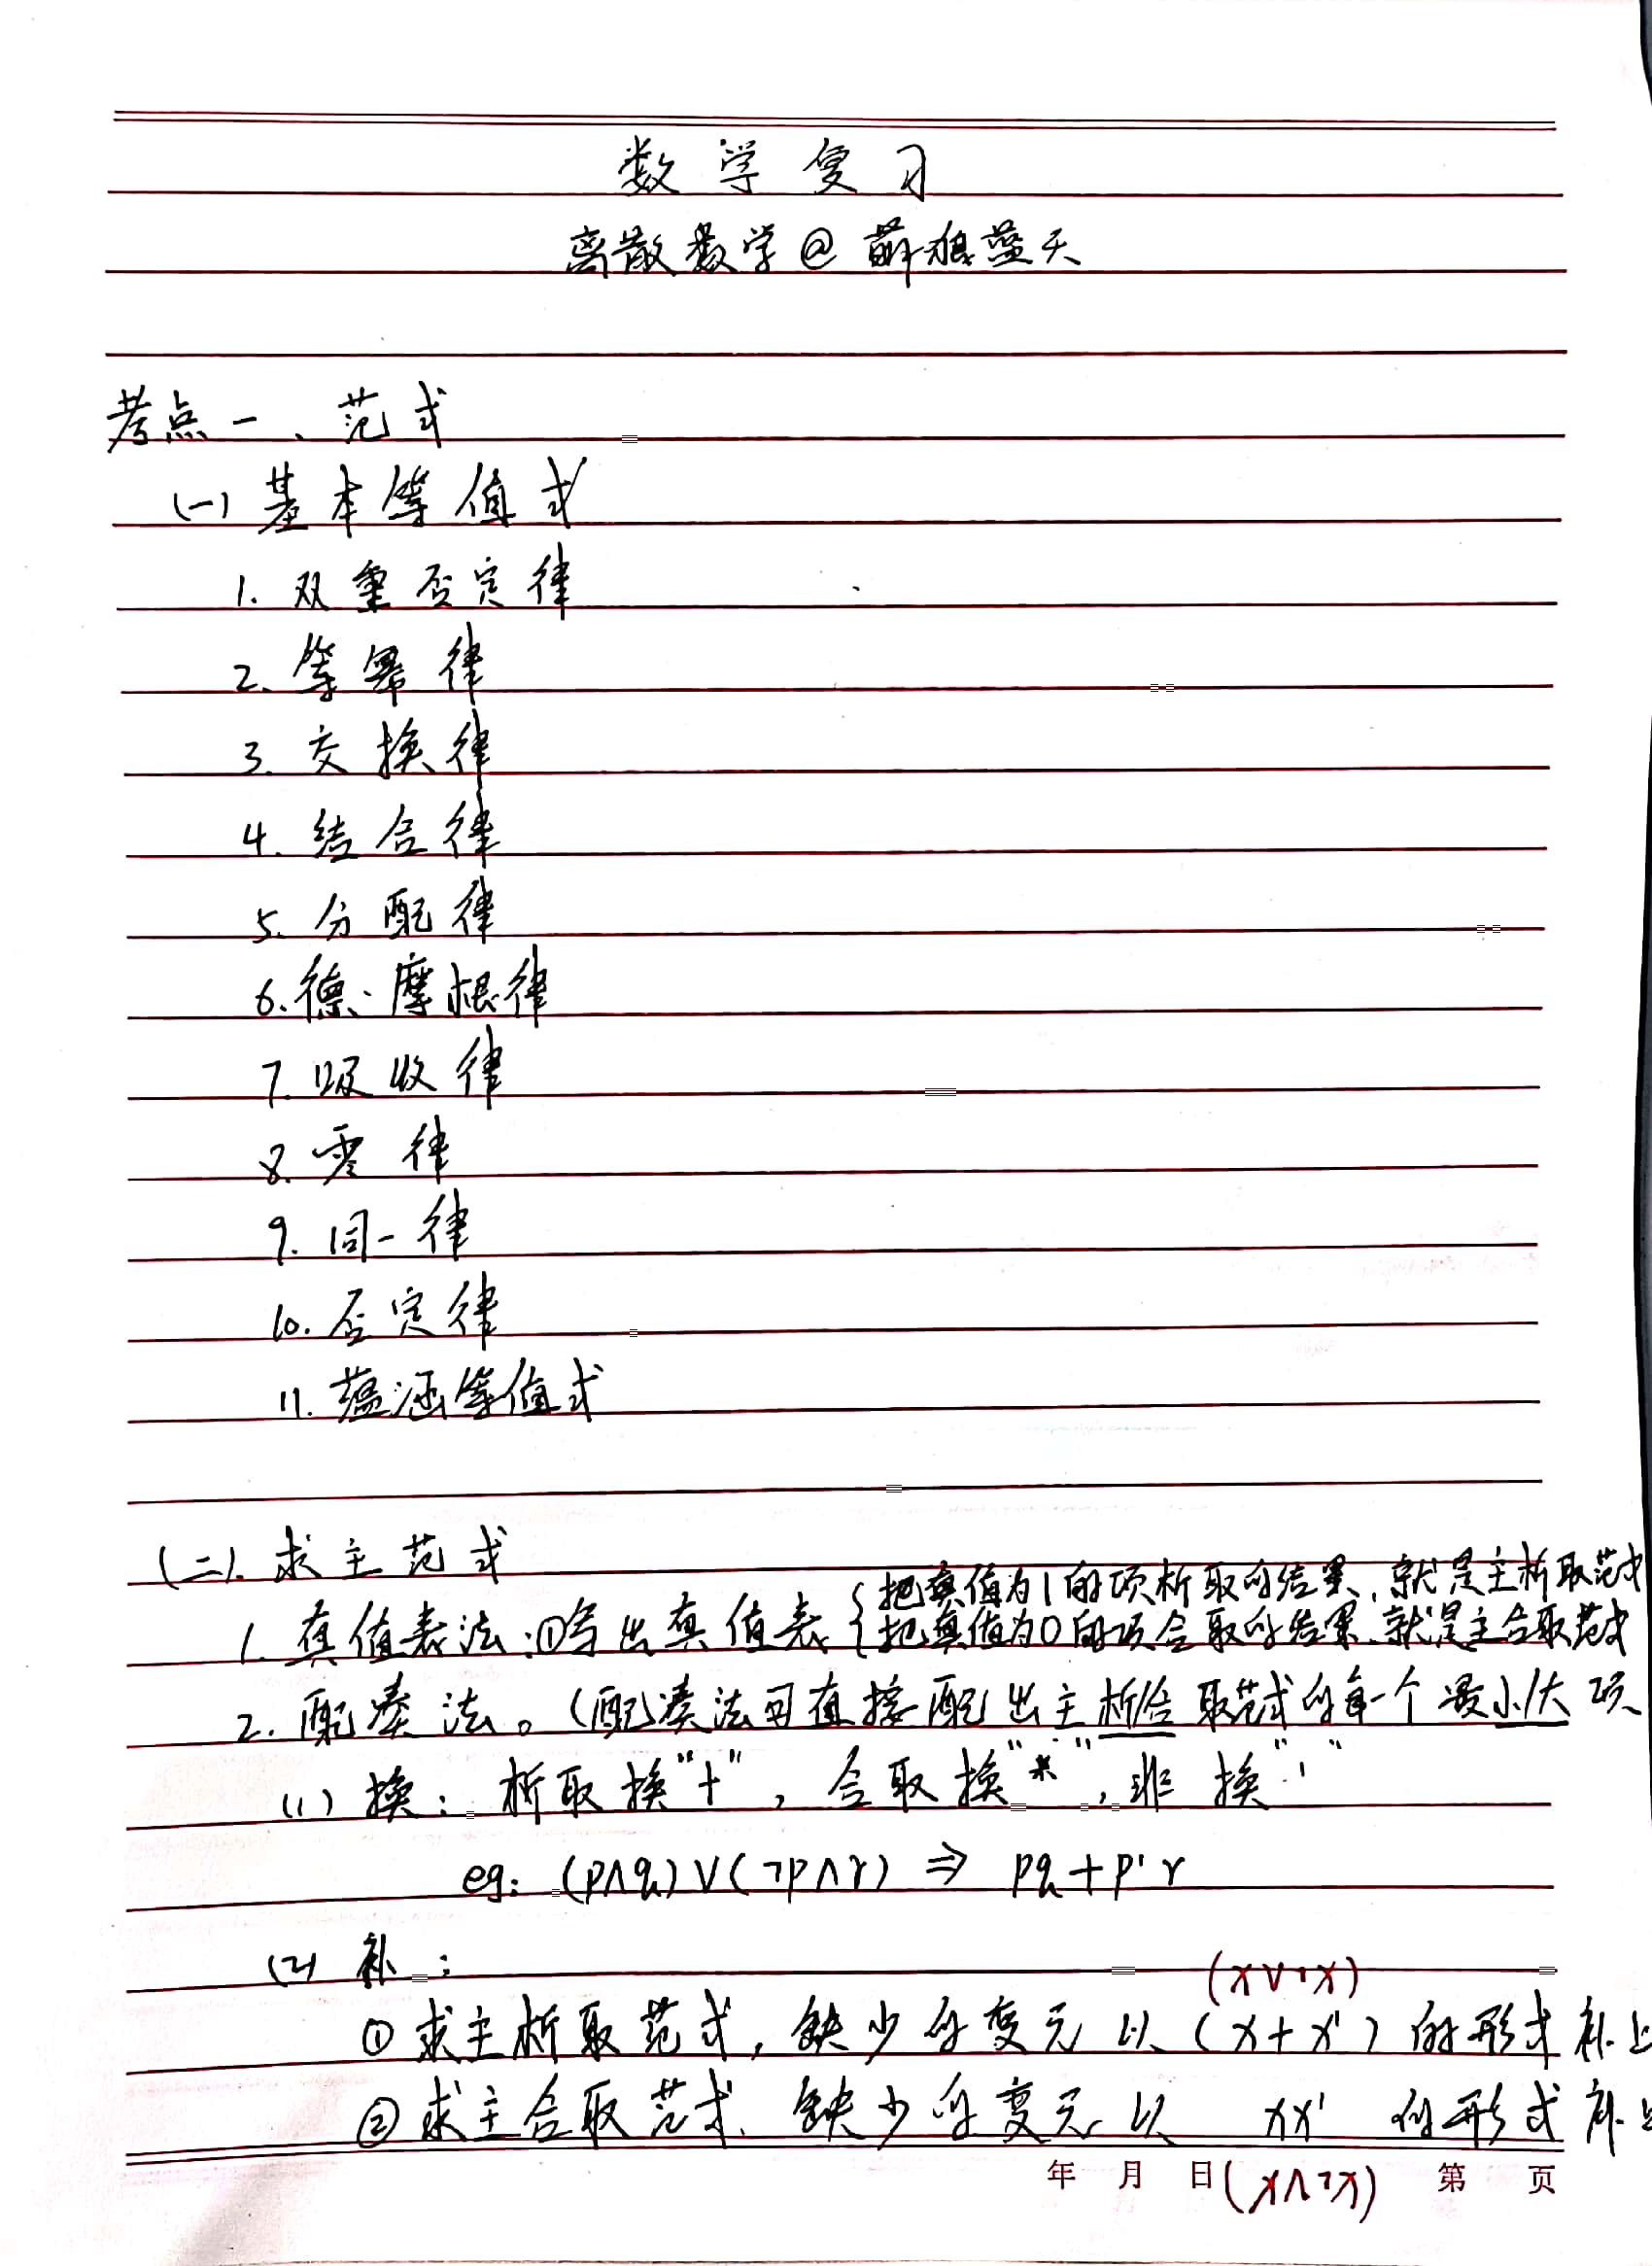 数学复习
离散数学@萌狼蓝天
考点一、范式
(一)基本等值式
1. 双重否定律
2. 等幂律
3. 交换律
4. 结合律
5. 分配律
6. 德·摩根律
7. 吸收律
8. 零律
9. 同一律
10. 否定律
11. 蕴涵等值式
(二). 求主范式
1. 真值表法:①写出真值表{把真值为1的项析取的结果,就是主析取范式
{把真值为0的项合取的结果,就是主合取范式
2. 配凑法。(配凑法可直接配出主析/合取范式的每一个最小/大项
(1) 换:析取换"+",合取换"*",非换"'"
eg: (p∧q)∨(¬p∧r) ⇒ pq+p'r
(2) 补:
(x∨¬x)
① 求主析取范式,缺少的变元以(x+x')的形式补上
② 求主合取范式,缺少的变元以 xx' 的形式补上
年 月 日 (x∧¬x) 第 页